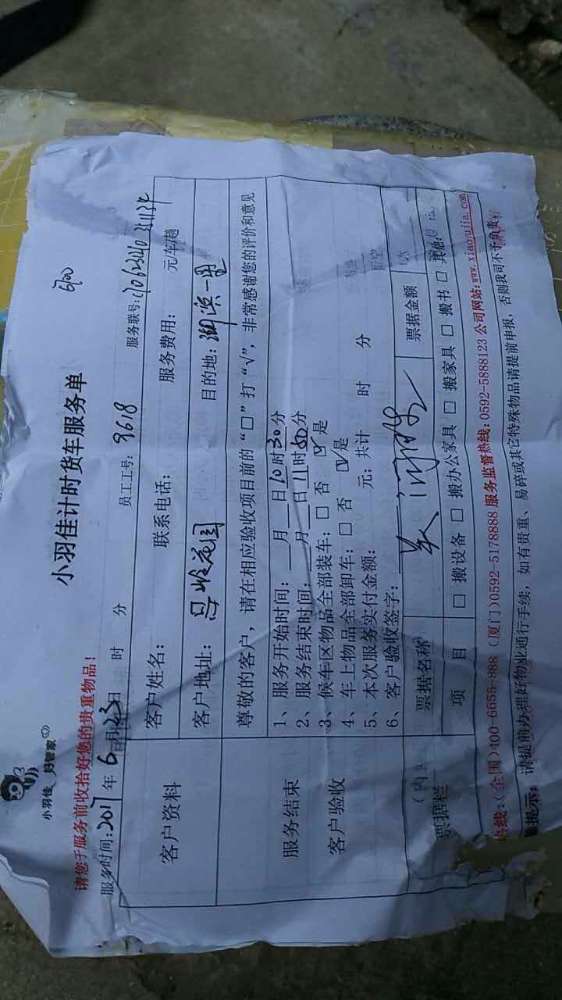 小羽佳 妇智家
小羽佳计时货车服务单
请您于服务前收拾好您的贵重物品！
服务时间：2017年6月23日 时 分 员工工号：9618 服务联号：
客户资料
客户姓名： 联系电话： 服务费用： 元/车/趟
客户地址：吕岭花园 目的地：
尊敬的客户，请在相应验收项目前的“□”打“√”，非常感谢您的评价和意见
服务结束
客户验收
1、服务开始时间：＿月＿日10时30分
2、服务结束时间：＿月＿日11时50分
3、候车区物品全部装车：□ 否 ☑ 是
4、车上物品全部卸车：□ 否 ☑ 是
5、本次服务实付金额： 元；共计 时 分
6、客户验收签字：
票据栏
票据名称 票据金额
项 目 □ 搬设备 □ 搬办公家具 □ 搬家具 □ 搬书 □ 其他
热线：（全国）400-6655-888（厦门）0592-5178888 服务监督热线：0592-5888123 公司网站：www.xiaoyujia.com
提示：请提前办理好物业通行手续，如有贵重、易碎或其它特殊物品请提前申报，否则我司不予负责。